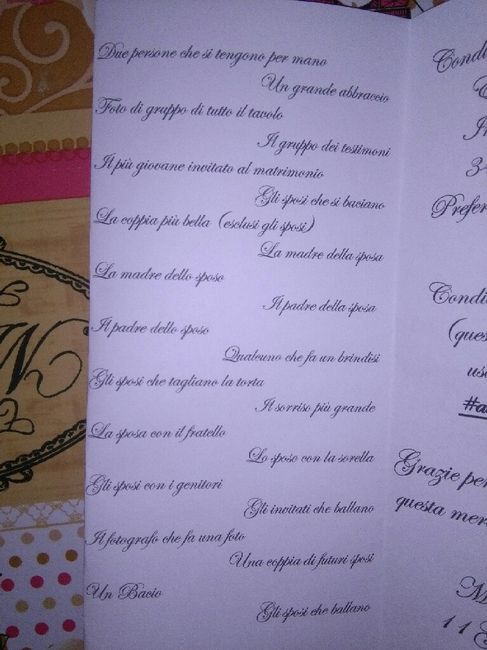 Due persone che si tengono per mano
Un grande abbraccio
Foto di gruppo di tutto il tavolo
Il gruppo dei testimoni
Il più giovane invitato al matrimonio
Gli sposi che si baciano
La coppia più bella (esclusi gli sposi)
La madre della sposa
La madre dello sposo
Il padre della sposa
Il padre dello sposo
Qualcuno che fa un brindisi
Gli sposi che tagliano la torta
Il sorriso più grande
La sposa con il fratello
Lo sposo con la sorella
Gli sposi con i genitori
Gli invitati che ballano
Il fotografo che fa una foto
Una coppia di futuri sposi
Un Bacio
Gli sposi che ballano
Condi
3
Prefer
Condi
(ques
us
#a
Grazie per
questa mer
M
11